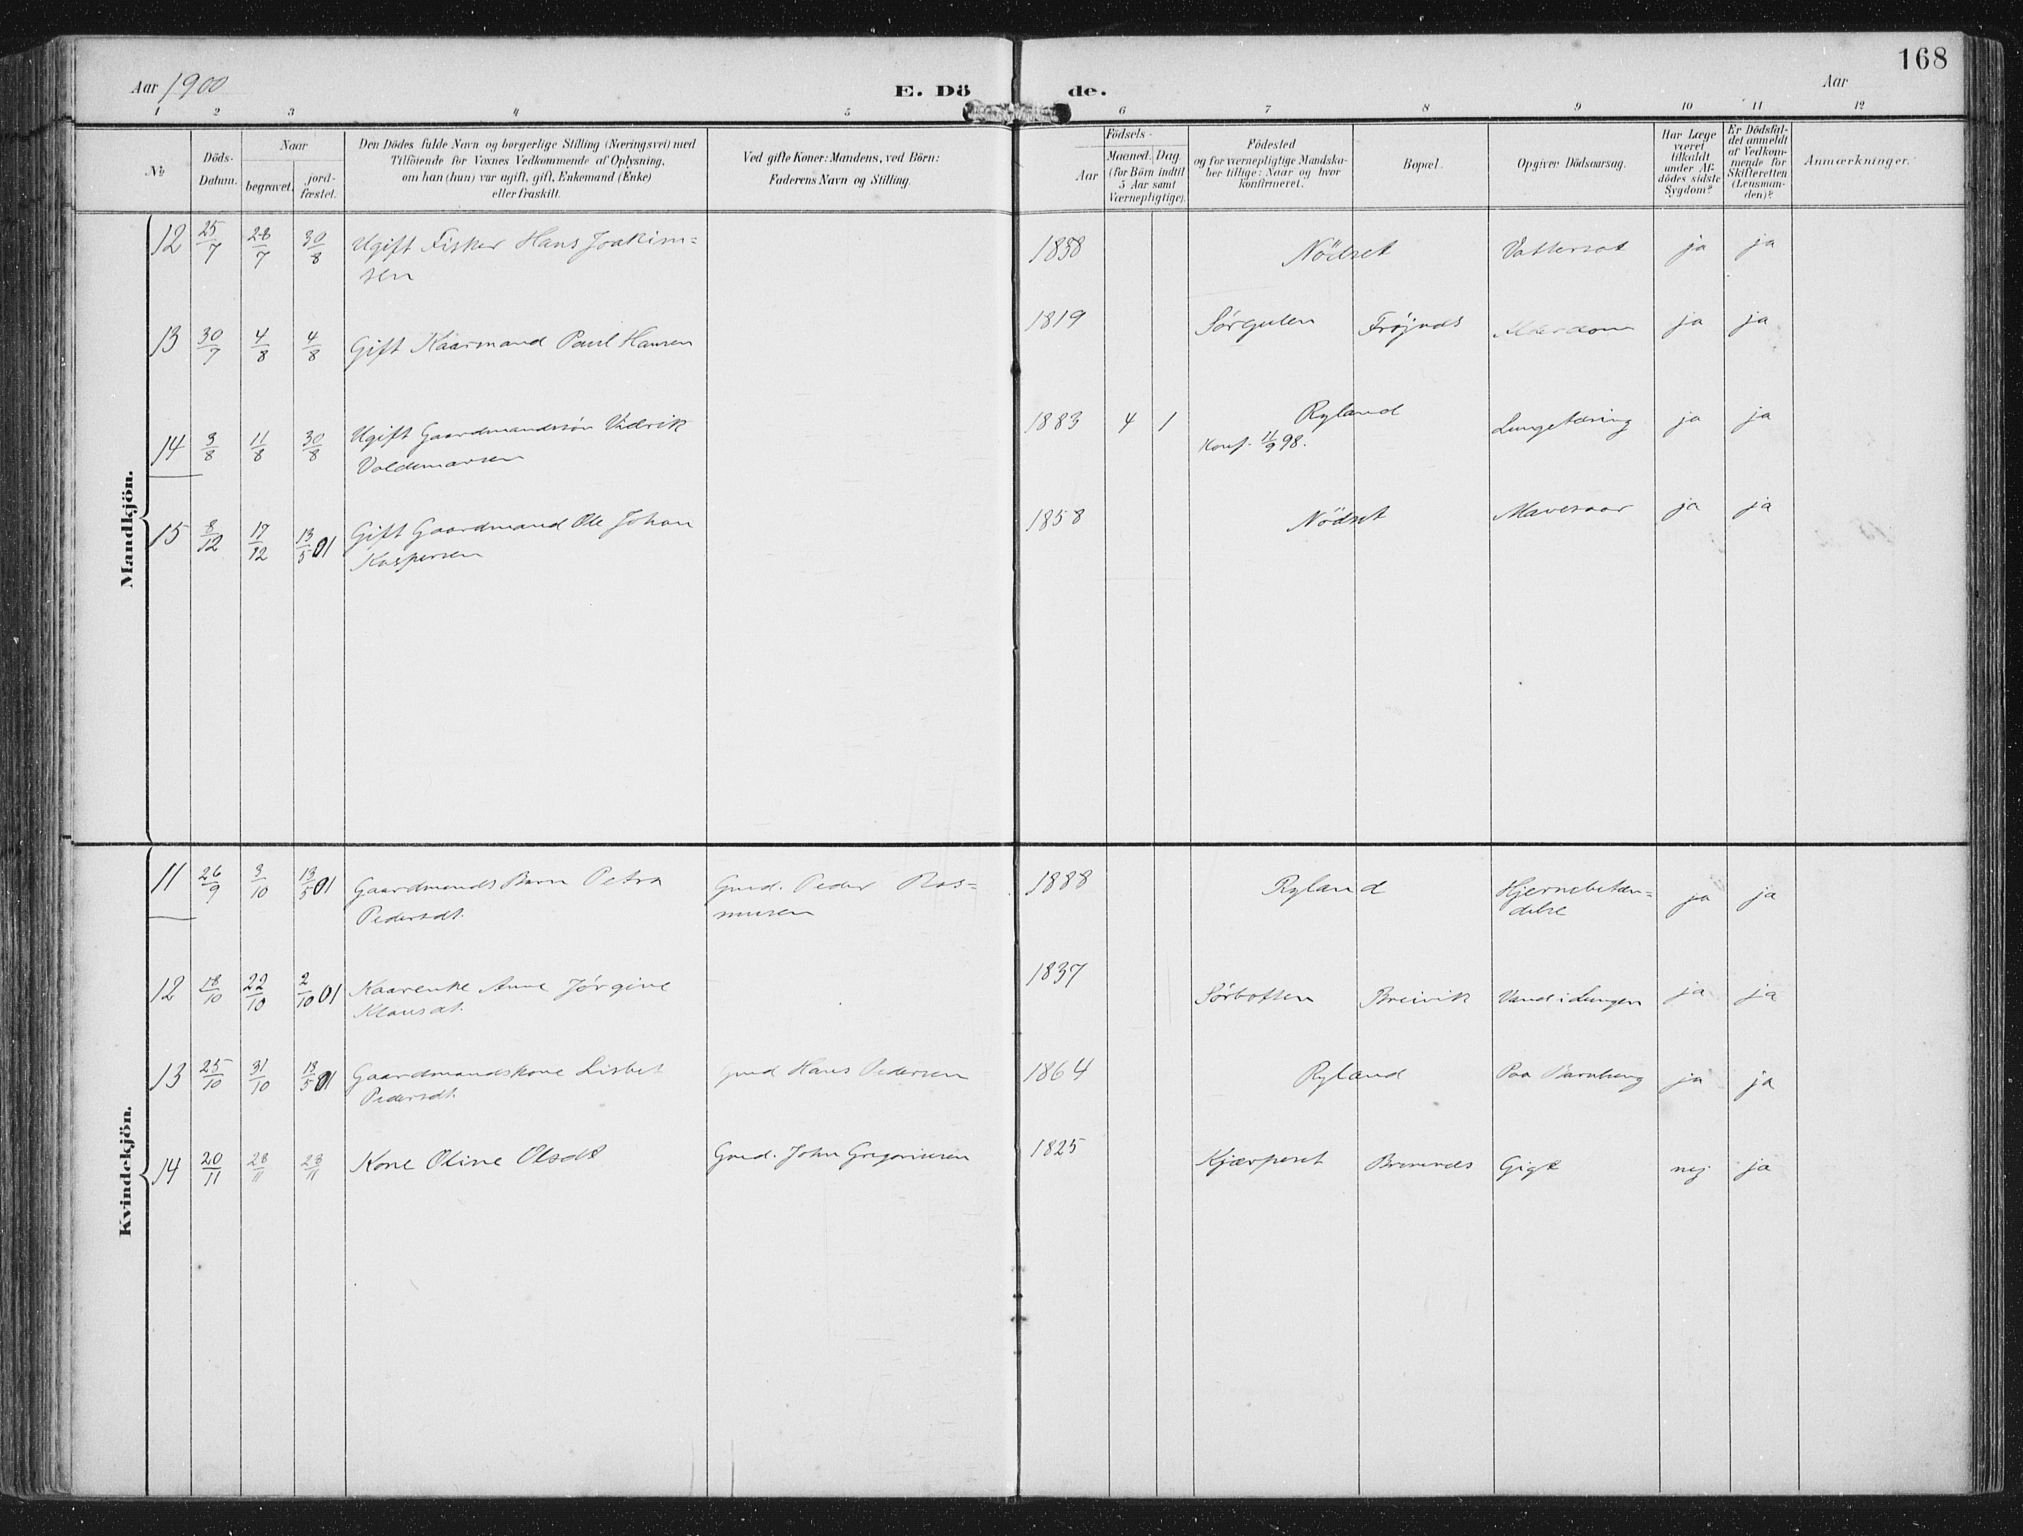 168
Aar 1900
E. Dö de.
Aar
1 2 3 4 5 6 7 8 9 10 11 12
№
Döds-Datum.
Naar
begravet.
jord-fæstet.
Den Dödes fulde Navn og borgerlige Stilling (Næringsvei) med
Tilföiende for Voxnes Vedkommende af Oplysning,
om han (hun) var ugift, gift, Enkemand (Enke)
eller fraskilt.
Ved gifte Koner: Mandens, ved Börn:
Faderens Navn og Stilling.
Födsels-
Aar
Maaned. Dag
(for Börn indtil
5 Aar samt
Værnepligtige).
Födested
og for værnepligtige Mandska-
ber tillige: Naar og hvor
konfirmeret.
Bopæl.
Opgiven Dödsaarsag.
Har Læge
været
tilkaldt
under Af-
dödes sidste
Sygdom?
Er Dödsfal-
det anmeldt
af Vedkom-
mende for
Skifteretten
(Lensman-
den)?
Anmærkninger.
Mandkjön.
12 25/7 28/7 30/8 Ugift Fisker Hans Joakim-
sen
1838 Nödset Vattersot ja ja
13 30/7 4/8 4/8 Gift Kaarmand Paul Hansen
1819 Sørgulen Frøjnds Alderdom ja ja
14 3/8 11/8 30/8 Ugift Gaardmandssøn
Valdemarsen
1883 4 1 Ryland Lungetæring ja ja
Konf. 11/9 98.
15 8/12 17/12 13/5 01 Gift Gaardmand Ole Johan
Kaspersen
1858 Nödset Mavesaar ja ja
Kvindekjön.
11 26/9 3/10 13/5 01 Gaardmands Barn Petra
Pedersdt.
Gmd. Peder Ras-
musen
1888 Ryland Hjernebetæn-
delse
ja ja
12 18/10 22/10 2/10 01 Kaarenke Anne Jørgine
Klausdt.
1837 Sørbotten Breivik Vand i Lungen ja ja
13 25/10 31/10 13/5 01 Gaardmandskone Lisbet
Pedersdt.
Gmd Hans Pedersen
1864 Ryland Paa Barnseng ja ja
14 20/11 28/11 28/11 Kone Oline Olsdt
Gmd. John Gregoriusen
1825 Kjærpeset Gigt nej ja